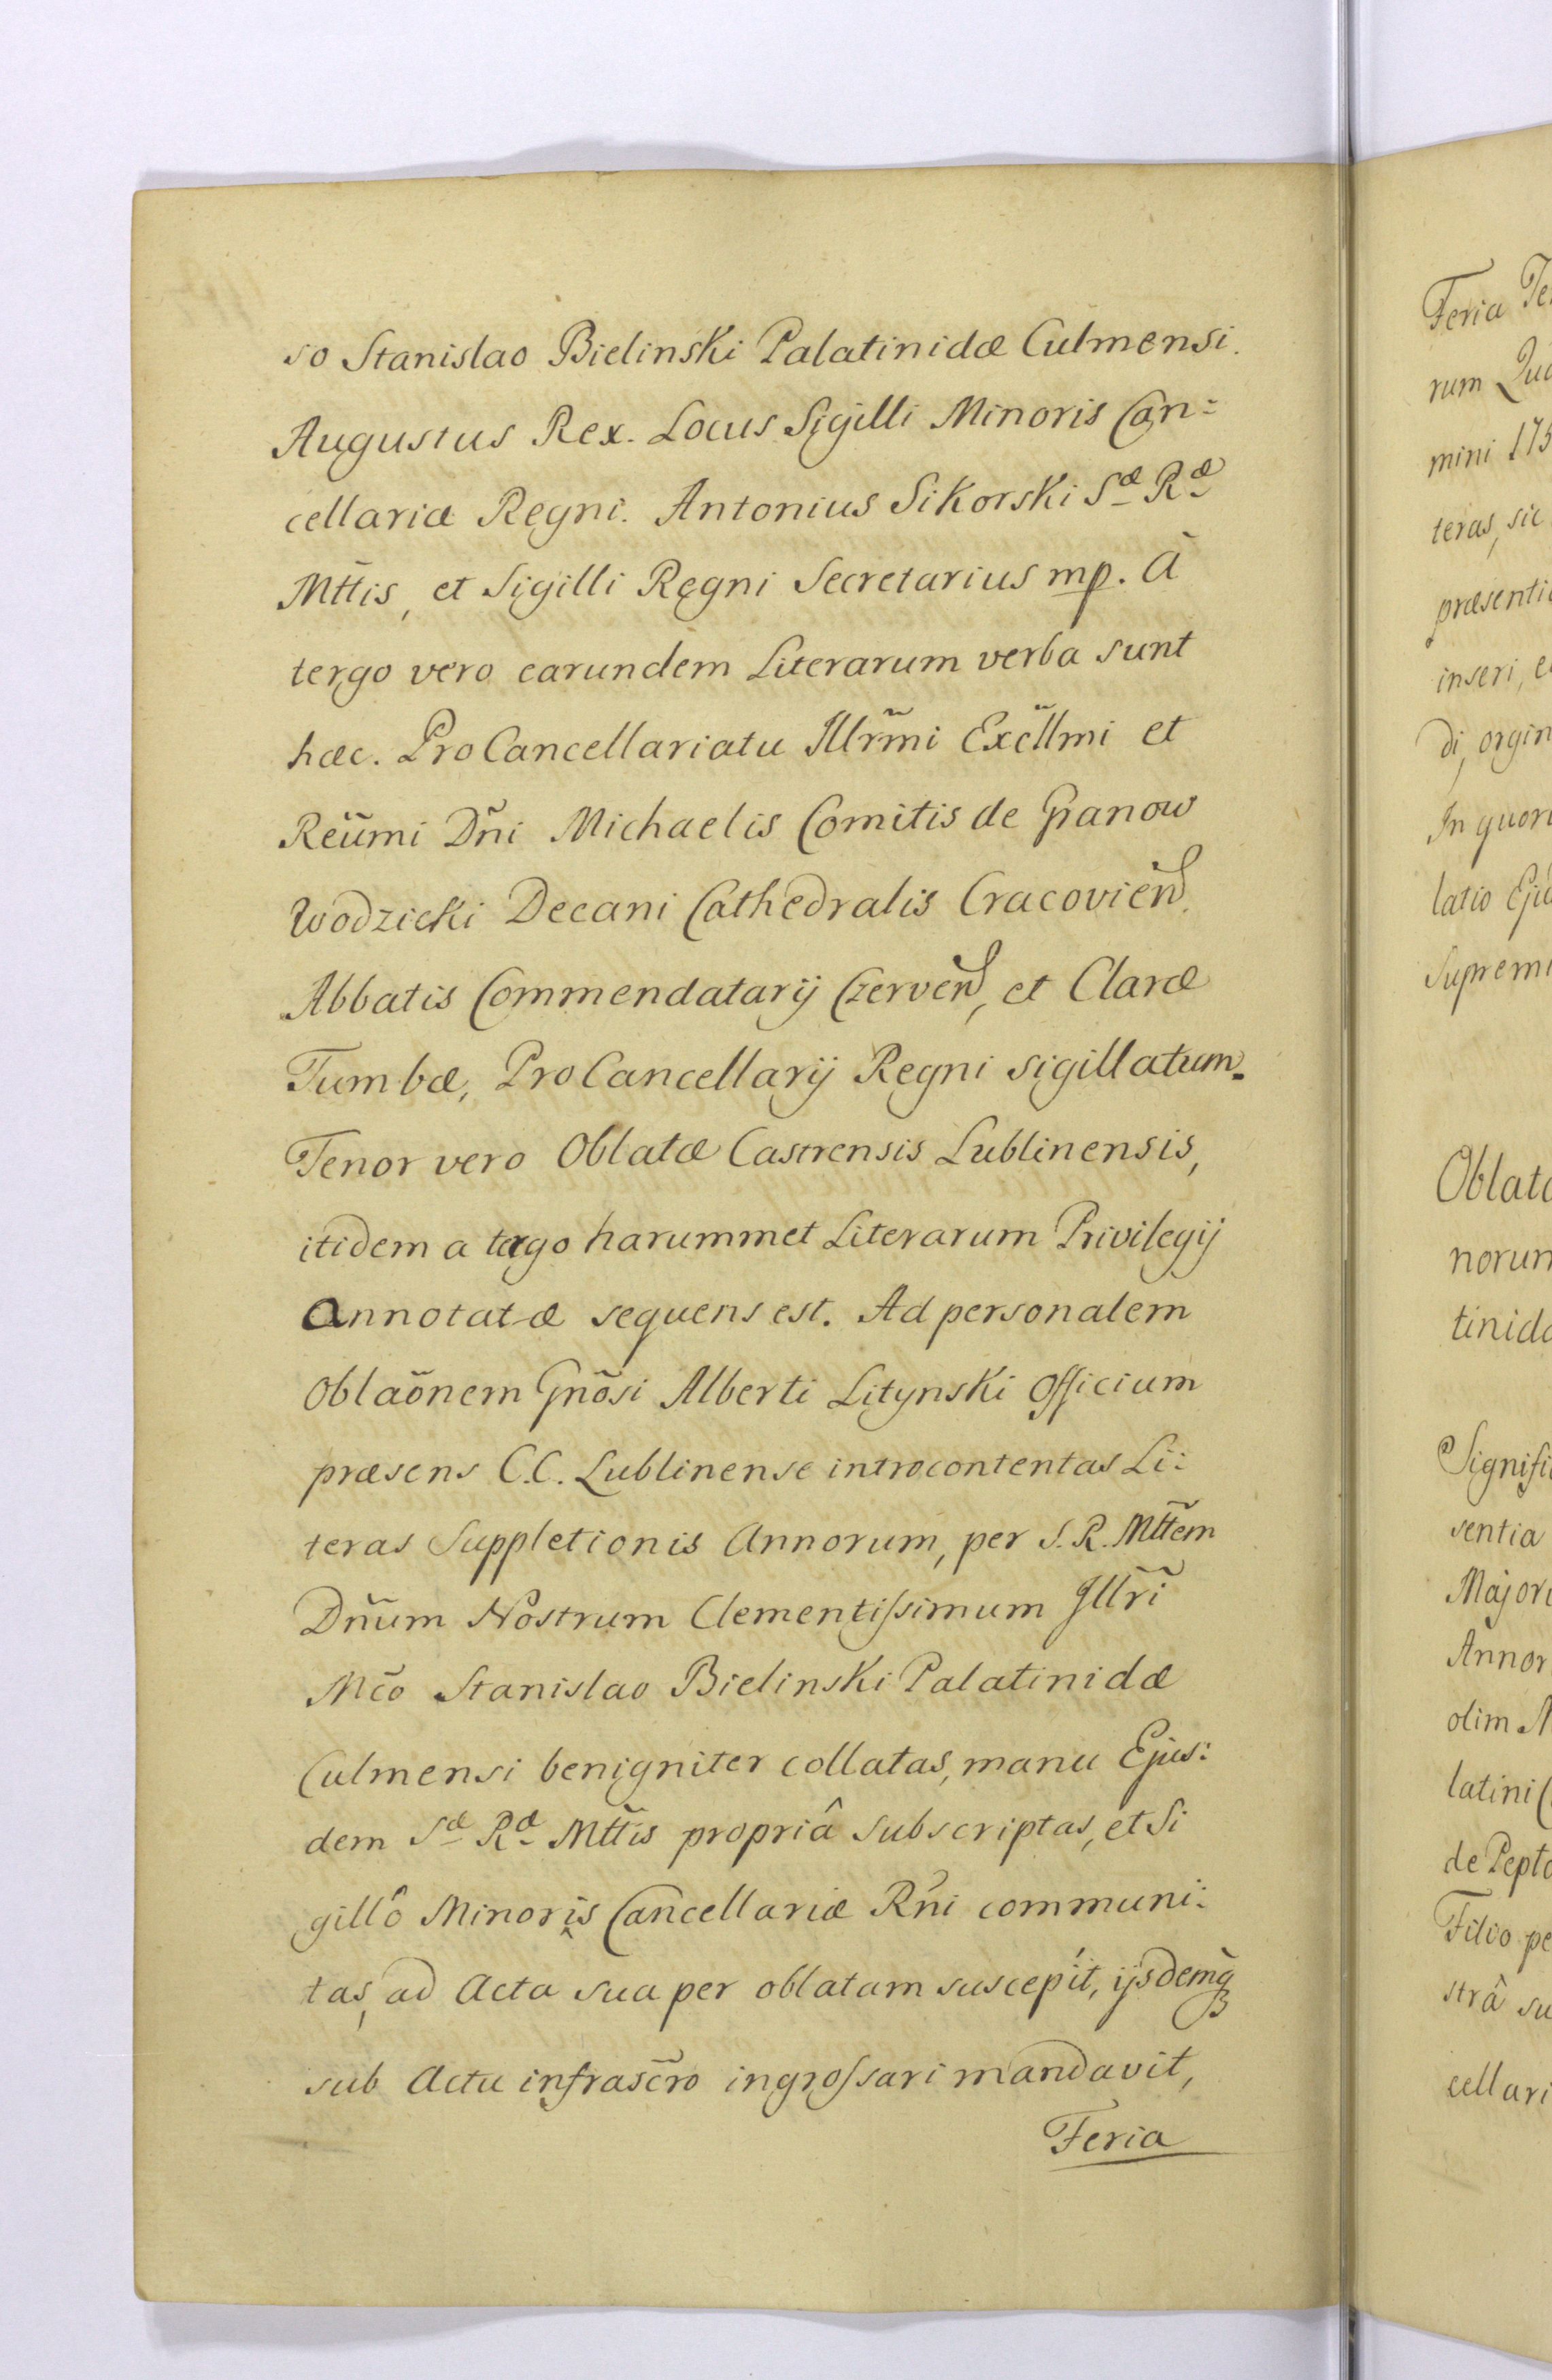 so Stanislao Bielinski Palatinidæ Culmensi.
Augustus Rex. Locus Sigilli Minoris Can=
cellariæ Regni. Antonius Sikorski Sæ Ræ
Mttis, et Sigilli Regni Secretarius mp. À
tergo vero earundem Literarum verba sunt
hæc. ProCancellariatu Illrm̃i Excl̃lmi et
Reũmi Dñi Michaelis Comitis de Granow
Wodzicki Decani Cathedralis Cracovień.
Abbatis Commendatarij Czerveń, et Claræ
Tumbæ, ProCancellarij Regni sigillatum.
Tenor vero Oblatæ Castrensis Lublinensis,
itidem a tergo harummet Literarum Privilegij
annotatæ sequens est. Ad personalem
oblaõnem Gnõsi Alberti Litynski Officium
præsens C.C. Lublinense introcontentas Li:
teras Suppletionis Annorum, per S.R. Mttẽm
Dñum Nostrum Clementissimum Illrĩ
Mc̃o Stanislao Bielinski Palatinidæ
Culmensi benigniter collatas, manu Ejus:
dem Sæ Ræ Mttis propriâ subscriptas, et Si
gillô Minoris Cancellariæ Rñi communi:
tas, ad Acta sua per oblatam suscepit, ijsdemq̃
sub Actu infrascr̃o ingrossari mandavit,
Feria
Feria Te
rum Qua
mini 175
teras, sic
præsenti
inseri, e
di, orgin
In quor
latio Eju
Supremi
Oblat
norum
tinid
Signifi
sentia
Major
Annor
olim
latini
de Pept
Filio pe
strâ su
cellari